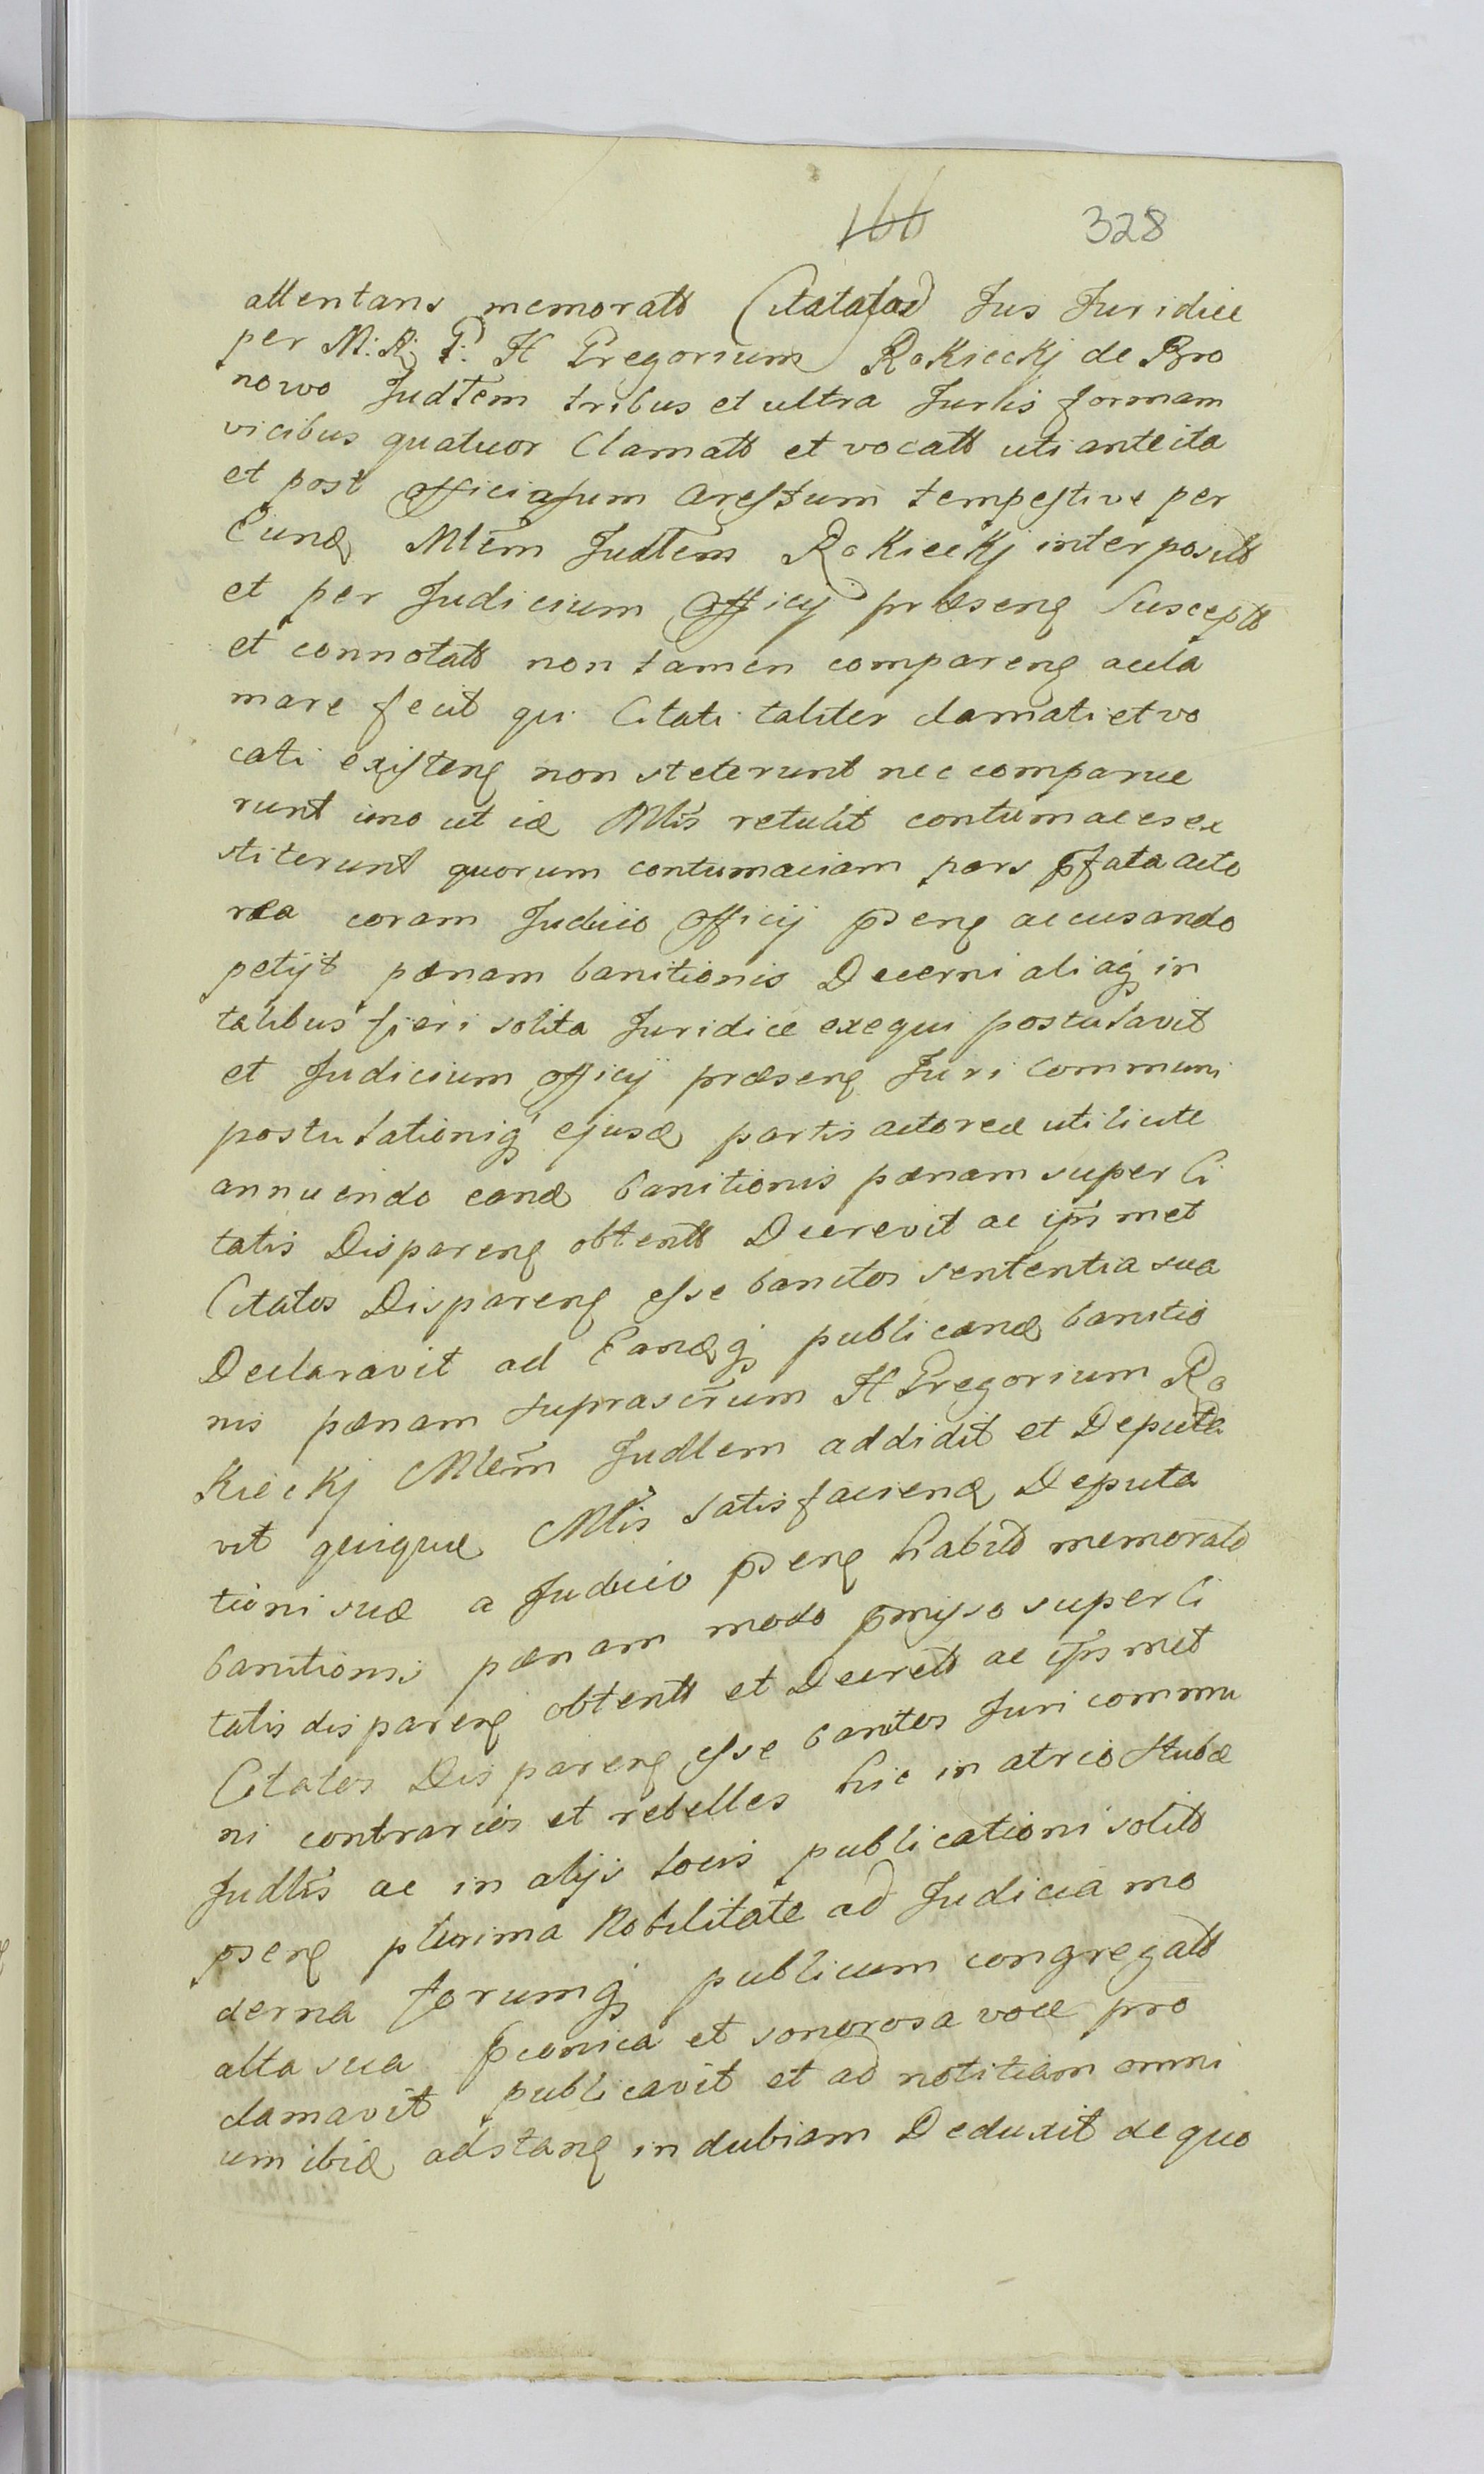 166 328
attentans memoratt Citatos ad Jus Juridice
per M: R: P: H Gregorium Rokieckj de Bro
nowo Judtem tribus et ultra Juris formam
vicibus quatuor Clamatt et vocatt uti ante ita
et post officiosum arestum tempestive per
Eund Mlem Judtem Rokieckj interposit
et per Judicium Officij præsens Susceptt
et connotatt non tamen comparens accla
mare fecit qui Citati taliter clamati et vo
cati existens non steterunt nec comparue
runt imo ut id Mlis retulit contumaces ex
stiterunt quorum contumaciam pars pfata acto
rea coram Judicio Officij psens accusando
petijt pænam banitionis Decerni aliaq in
talibus fieri solita Juridice exequi postulavit
et Judicium officij præsens Juri Communi
postulationiq ejusd partis actoreæ uti licite
annuendo eand banitionis pænam super Ci
tatis Disparens obtentt Decrevit ac ipsmet
Citatos Disparens esse banitos sententia sua
Declaravit ad Eandq publicand banitio
nis pænam suprascrum H Gregorium Ro
kieckj Mlem Judtem addidit et Deputa
vit quique Mlis satisfaciend Deputa
tioni suæ a Judicio psens habit memorat
banitionis pænam modo pmisso super Ci
tatis disparens obtentt et Decrett ac ipsmet
Citatos Disparens esse banitos Juri commu
ni contrarios et rebelles hic in atrio Stubæ
Judlis ac in alijs locis publicationi solitt
psens plurima Nobilitate ad Judicia mo
derna forumq publicum congregatt
alta sua pconica et sonorosa voce pro
clamavit publicavit et ad notitiam omni
um ibid adstans indubiam Deduxit de quo